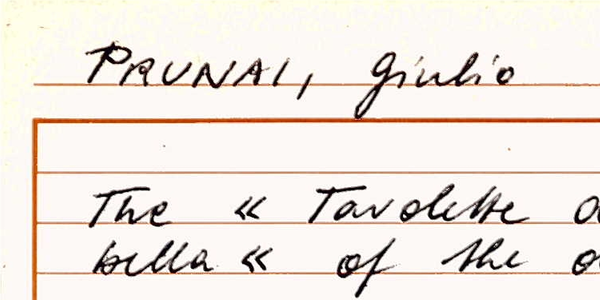 PRUNAI, Giulio
The « Tavolette
bella « of the